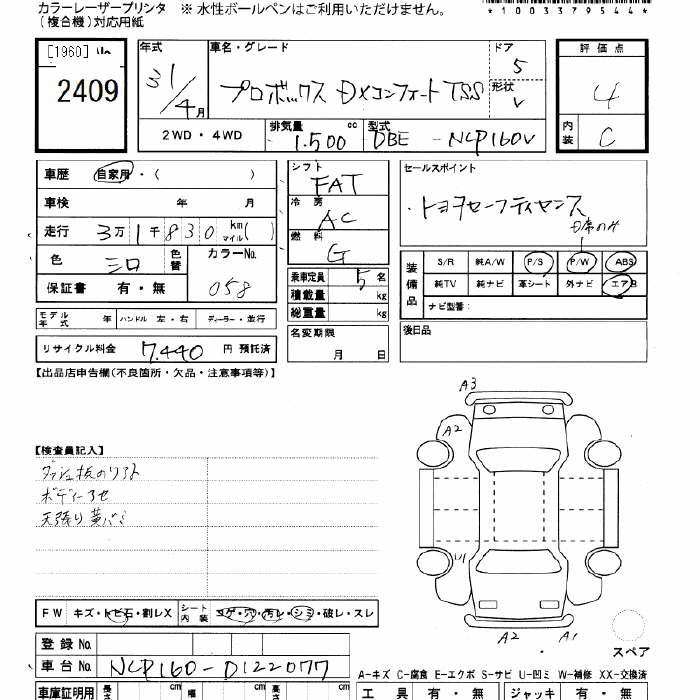 カラーレーザープリンタ ※ 水性ボールペンはご利用いただけません。
(複合機)対応用紙
*1003379544*
[1960]
2409
年式 31/4月
車名・グレード プロボックス DXコンフォート TSS
ドア 5
形状 V
評価点 4
内装 C
2WD・4WD
排気量 1.500 cc
型式 DBE - NCP160V
車歴 自家用・( )
車検 年 月
走行 3万1千830 km マイル( )
色 シロ 色替
カラーNo. 058
保証書 有・無
シフト FAT
冷房 AC
燃料 G
乗車定員 5 名
積載量 kg
総重量 kg
セールスポイント
・トヨタセーフティセンス
装備品
S/R 純A/W P/S P/W ABS
純TV 純ナビ 革シート 外ナビ エアB
ナビ型番:
モデル年式 年 ハンドル 左・右 ディーラー・並行
リサイクル料金 7,440 円 預託済
名変期限
月 日
後日品
【出品店申告欄(不良箇所・欠品・注意事項等)】
【検査員記入】
A3
A2
A2 A1
スペア
FW キズ・トビ石・割レX
シート内装 コゲ・穴・汚レ・シミ・破レ・スレ
登録 No.
車台 No. NCP160-D122077
A-キズ C-腐食 E-エクボ S-サビ U-凹ミ W-補修 XX-交換済
車庫証明用 長さ cm 幅 cm cm
工具 有・無 ジャッキ 有・無